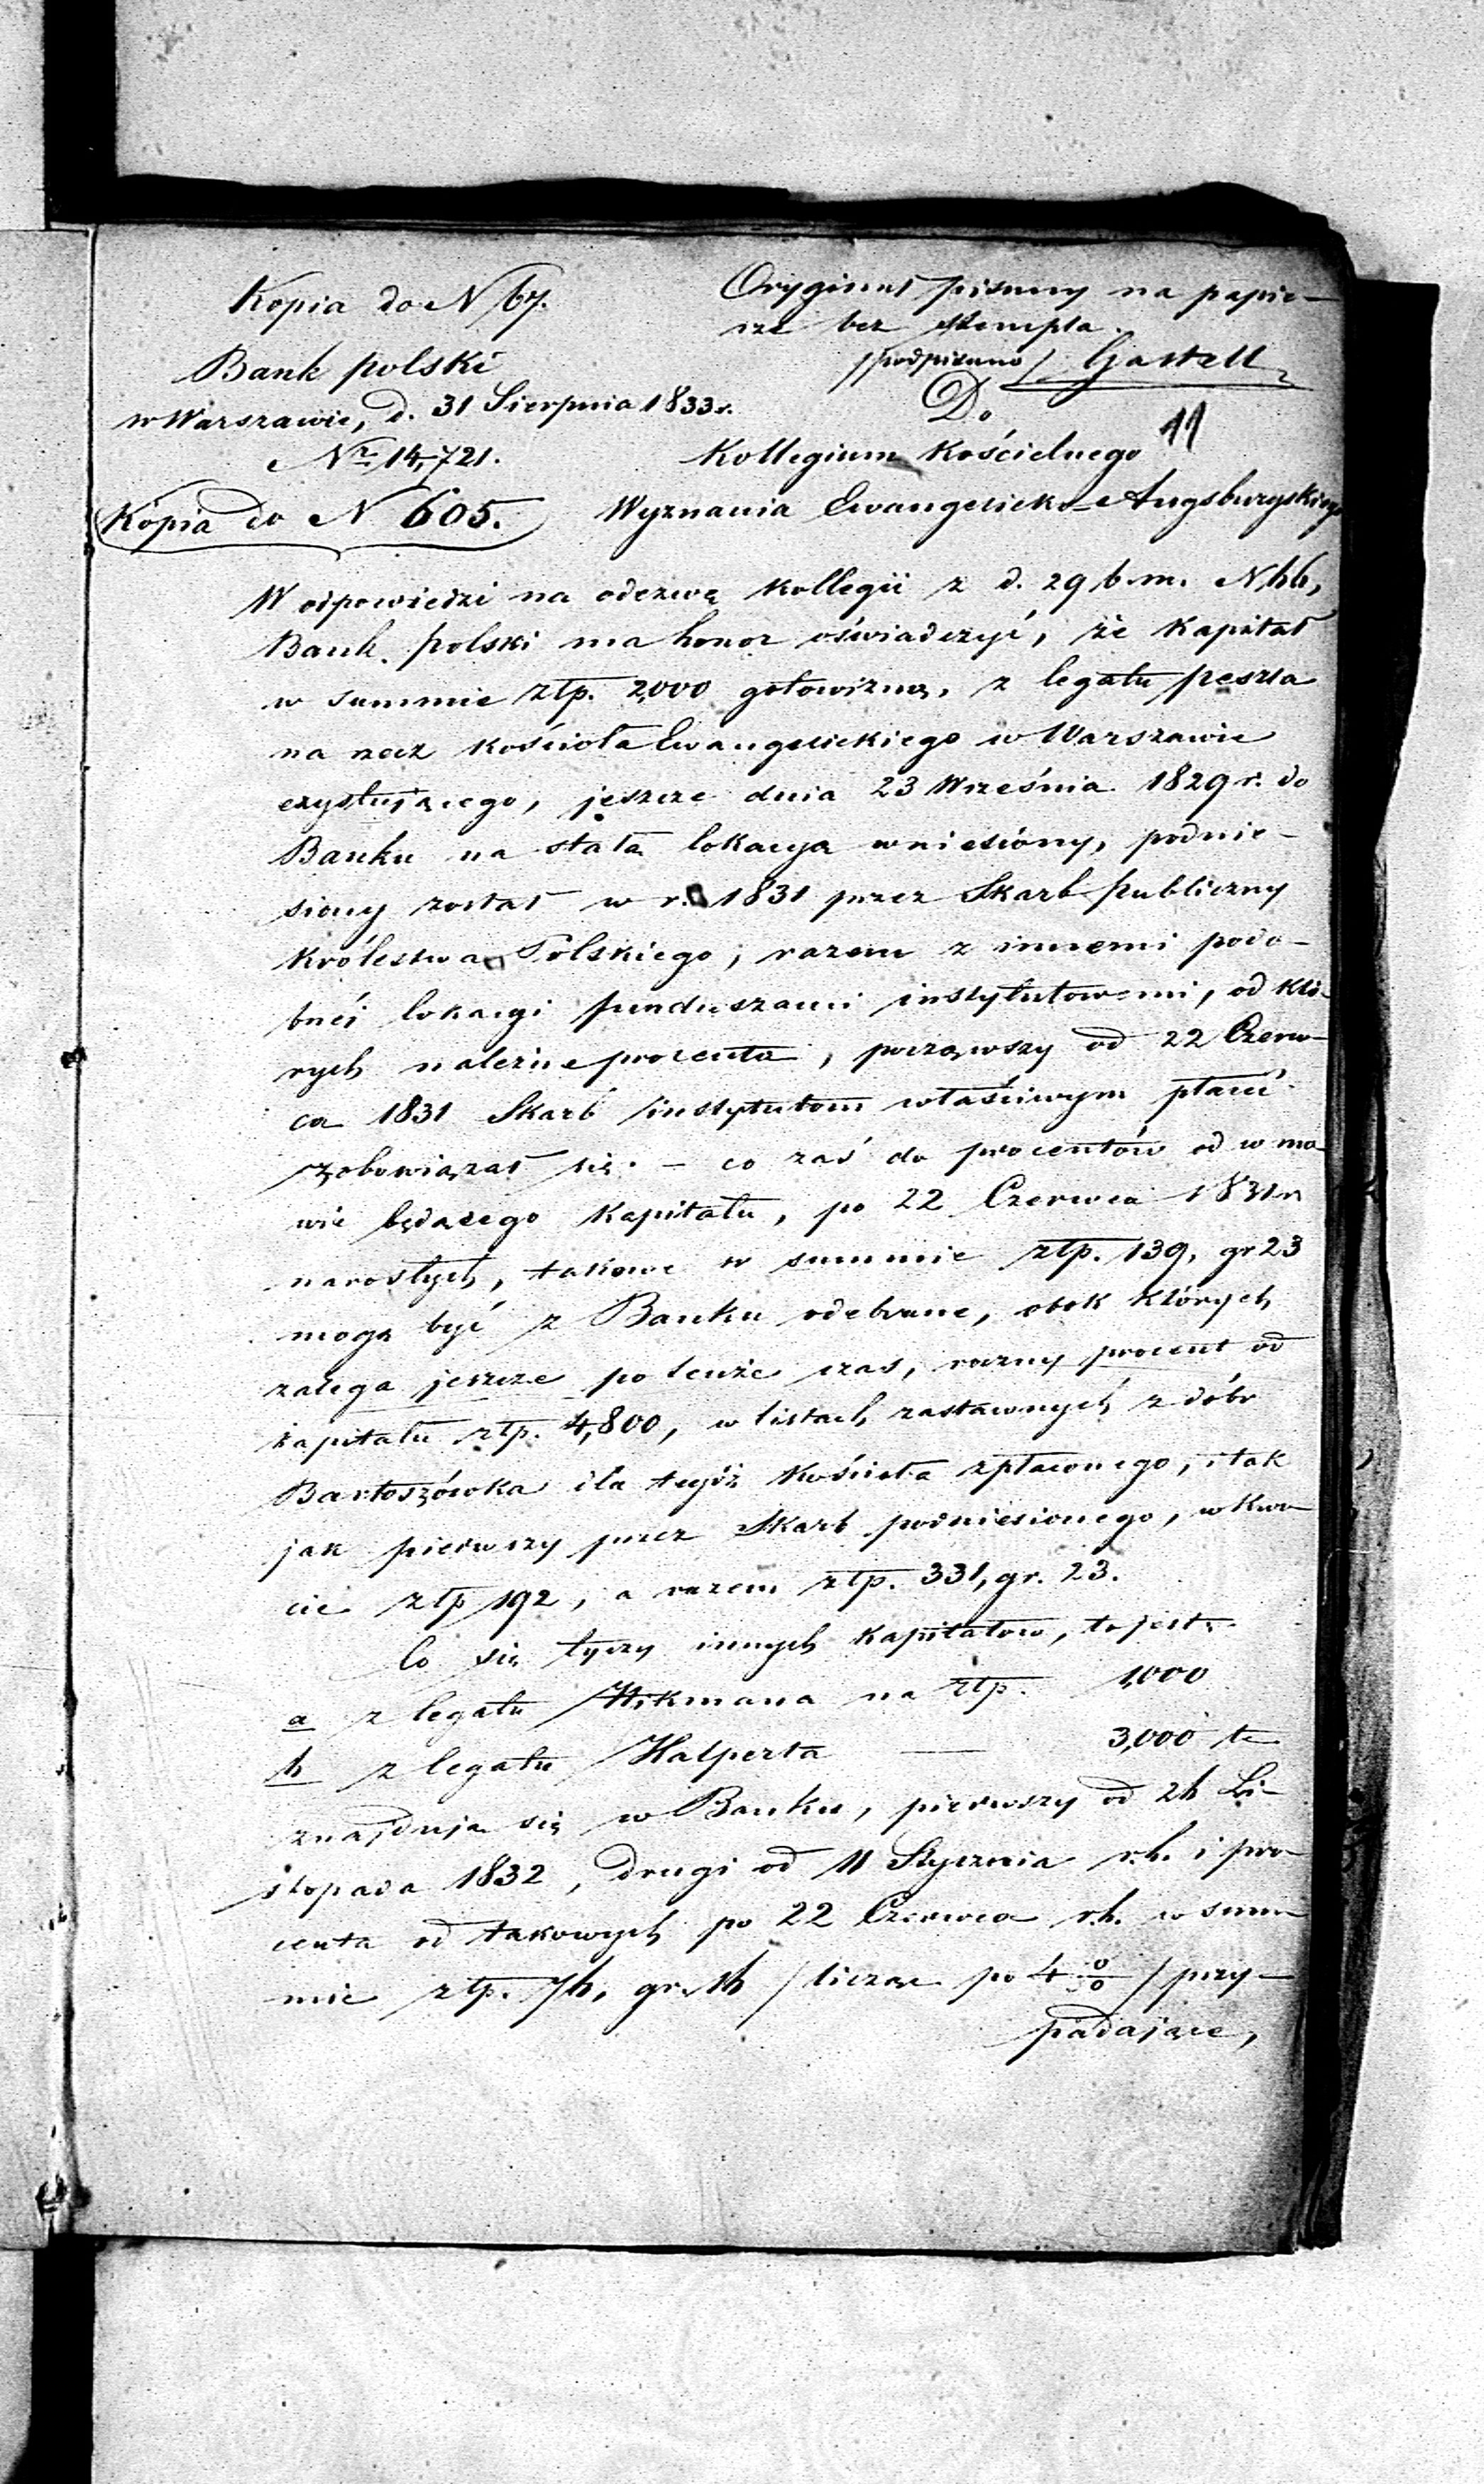 Kopia do N 67.
Oryginał pisany na papie-
rze bez stempla.
/podpisano/ Gastell
Bank polski
w Warszawie, d. 31 Sierpnia 1833 r.
Nr. 14,721.
Kopia do N 605.
Do
11
Kollegium Kościelnego
Wyznania Ewangelicko-Augsburgskiego
W odpowiedzi na odezwę Kollegii z d. 29 b.m. N
Bank polski ma honor oświadczyć, że Kapitał
w summie złp. 2,000 gotowizną, z legatu
na rzecz Kościoła Ewangelickiego w Warszawie
exystującego, jeszcze dnia 23 Września 1829 r. do
Banku na stałą lokacyą wniesióny, podnie-
siony został w r. 1831 przez Skarb publiczny
Królestwa Polskiego, razem z innemi podo-
bnéj lokacyi funduszami instytutowemi, od któ-
rych należne procenta, począwszy od 22 Czerw-
ca 1831 Skarb instytutom właściwym płacić
zobowiązał się. – co zaś do procentów od w mo-
wie będącego Kapitału, po 22 Czerwca 1831 r
narosłych, takowe w summie złp. 139, gr 23
mogą być z Banku odebrane, obok których
zalega jeszcze po tenże czas, roczny procent od
kapitału złp. 4,800, w listach zastawnych z dóbr
Bartoszówka dla tegóż Kościoła zpłaconego, i tak
jak pierwszy przez Skarb podniesionego, w kwo-
cie złp 192, a razem złp. 331, gr. 23.
Co się tyczy innych Kapitałow, to jest:
a z legatu na złp. 1,000
b z legatu Halperta — 3,000 te
znajdują się w Banku, pierwszy od Li-
stopada 1832, drugi od 11 Stycznia r.b. i pro-
centa od takowych po 22 Czerwca r.b. w sum-
mie złp. gr. / licząc po 4 % / przy-
padające,